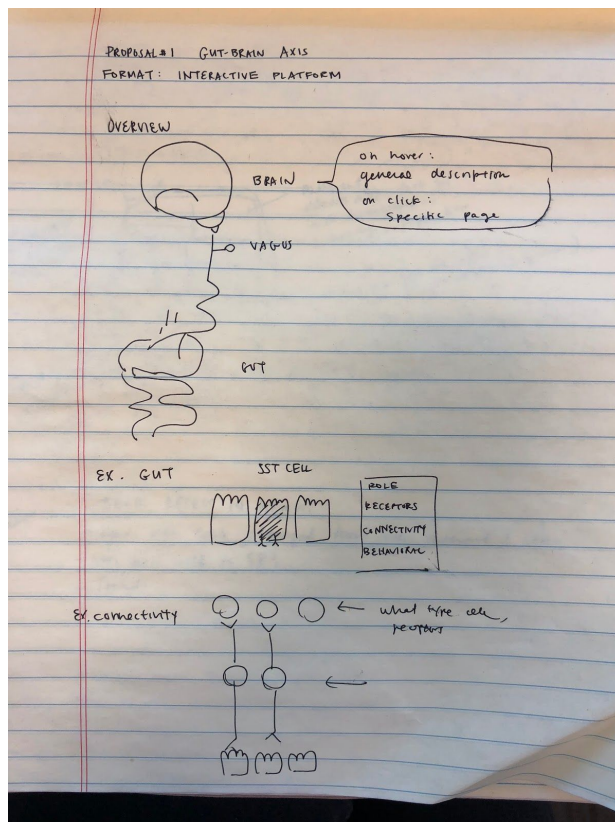 PROPOSAL #1 GUT-BRAIN AXIS
FORMAT: INTERACTIVE PLATFORM
OVERVIEW
BRAIN
on hover:
general description
on click:
specific page
VAGUS
GUT
EX. GUT
SST CELL
ROLE
RECEPTORS
CONNECTIVITY
BEHAVIORAL
Ex. connectivity
what type